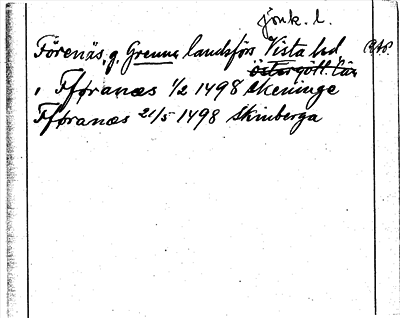 Jönk. l.
Förenäs, g. Grenna landsförs Vista hd
östergötl. län
i Fføranæs 1/2 1498 Skeninge
Fføranæs 21/5 1498 Skinberga